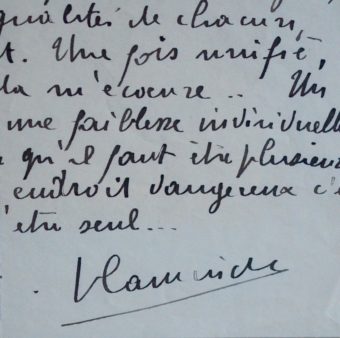 qualités de chacun,
t. Une fois unifié,
la m'écoeure .. Un
une faiblesse individuelle
qu'il faut être plusieurs
endroit dangereux c'e
'etre seul...
Vlaminck